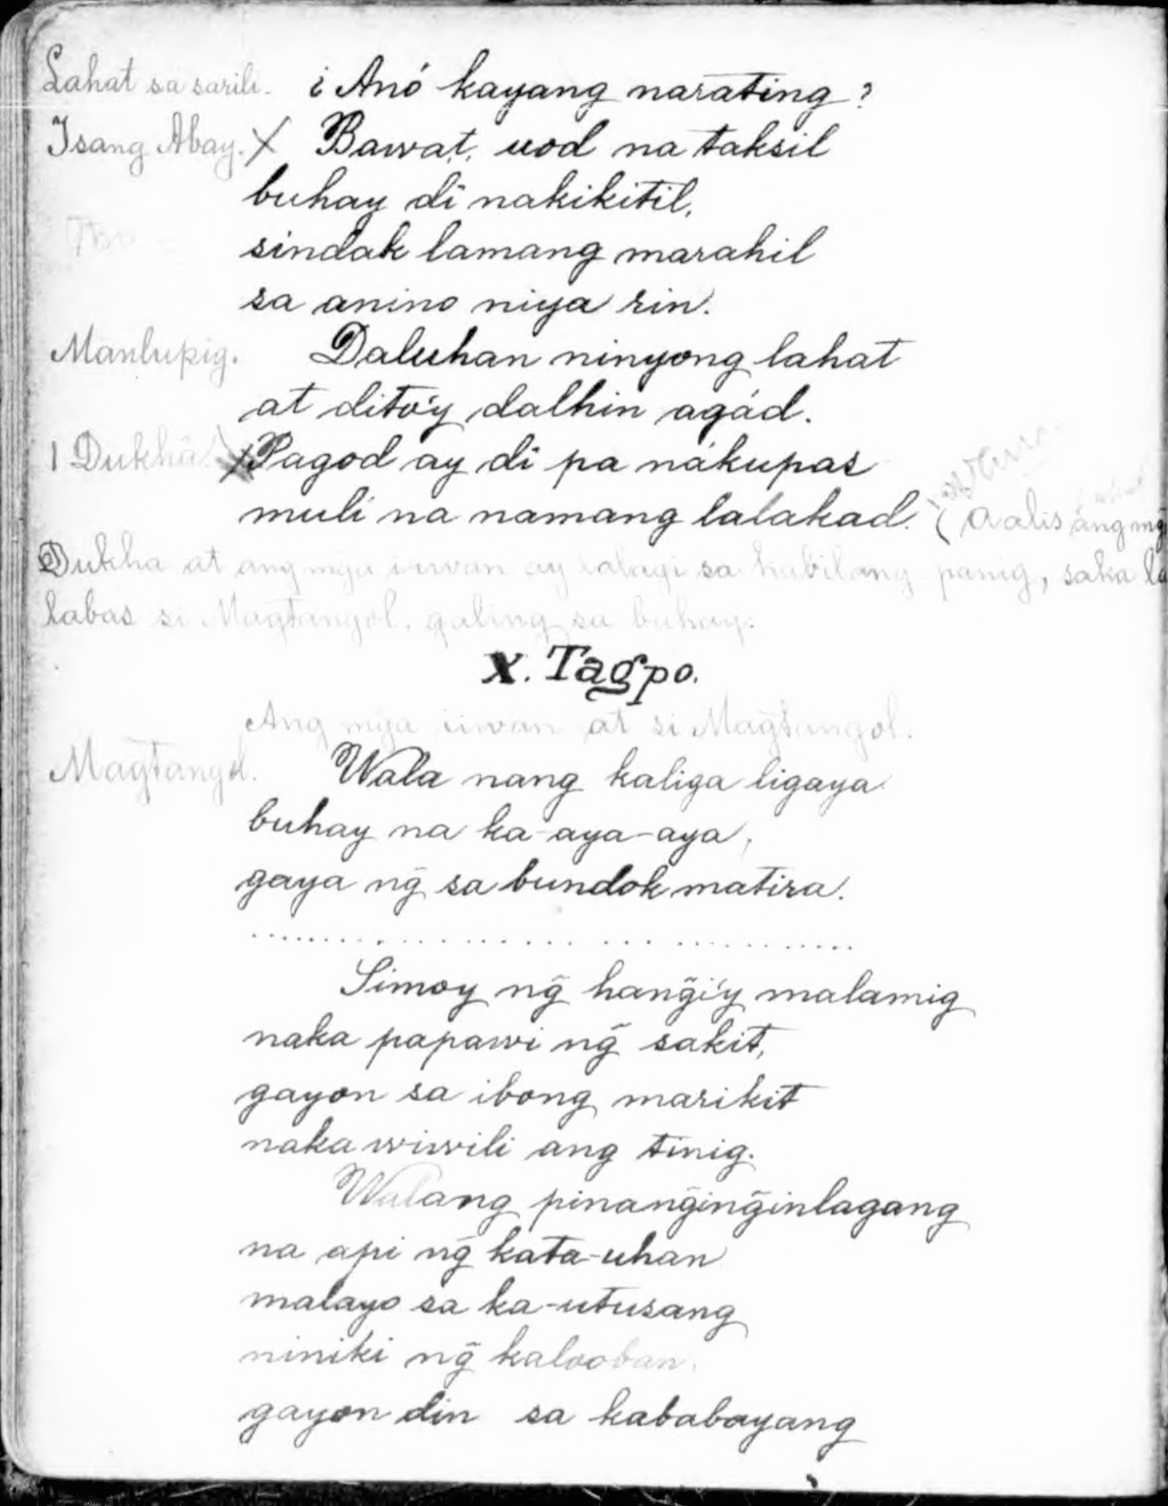 Lahat sa sarili. ¿Anó kayang narating?
Isang Abay. X Bawat, uod na taksil
buhay di nakikitil,
sindak lamang marahil
sa anino niya rin.
Manlupig. Daluhan ninyong lahat
at dito'y dalhin agád.
1 Dukhâ. Pagod ay di pa nákupas
muli na namang lalakad. (Aalis ang mg̃
Dukha at ang mga iiwan ay lalagi sa kabilang panig, saka la
labas si Magtangol. galing sa buhay.
X. Tagpo.
Ang mga iiwan at si Magtangol.
Magtangol. Wala nang kaliga ligaya
buhay na ka-aya-aya,
gaya ng̃ sa bundok matira.
Simoy ng̃ hang̃i'y malamig
naka papawi ng̃ sakit,
gayon sa ibong marikit
naka wiwili ang tinig.
Walang pinang̃ing̃inlagang
na api ng̃ kata-uhan
malayo sa ka-utusang
niniki ng̃ kalooban.
gayon din sa kababayang